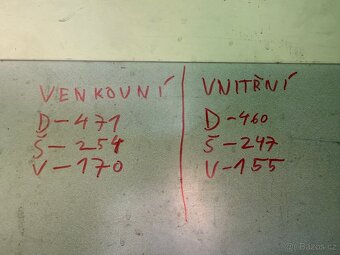 VENKOVNÍ
D-471
Š-254
V-170
VNITŘNÍ
D-460
Š-247
V-155
Bazoš.cz